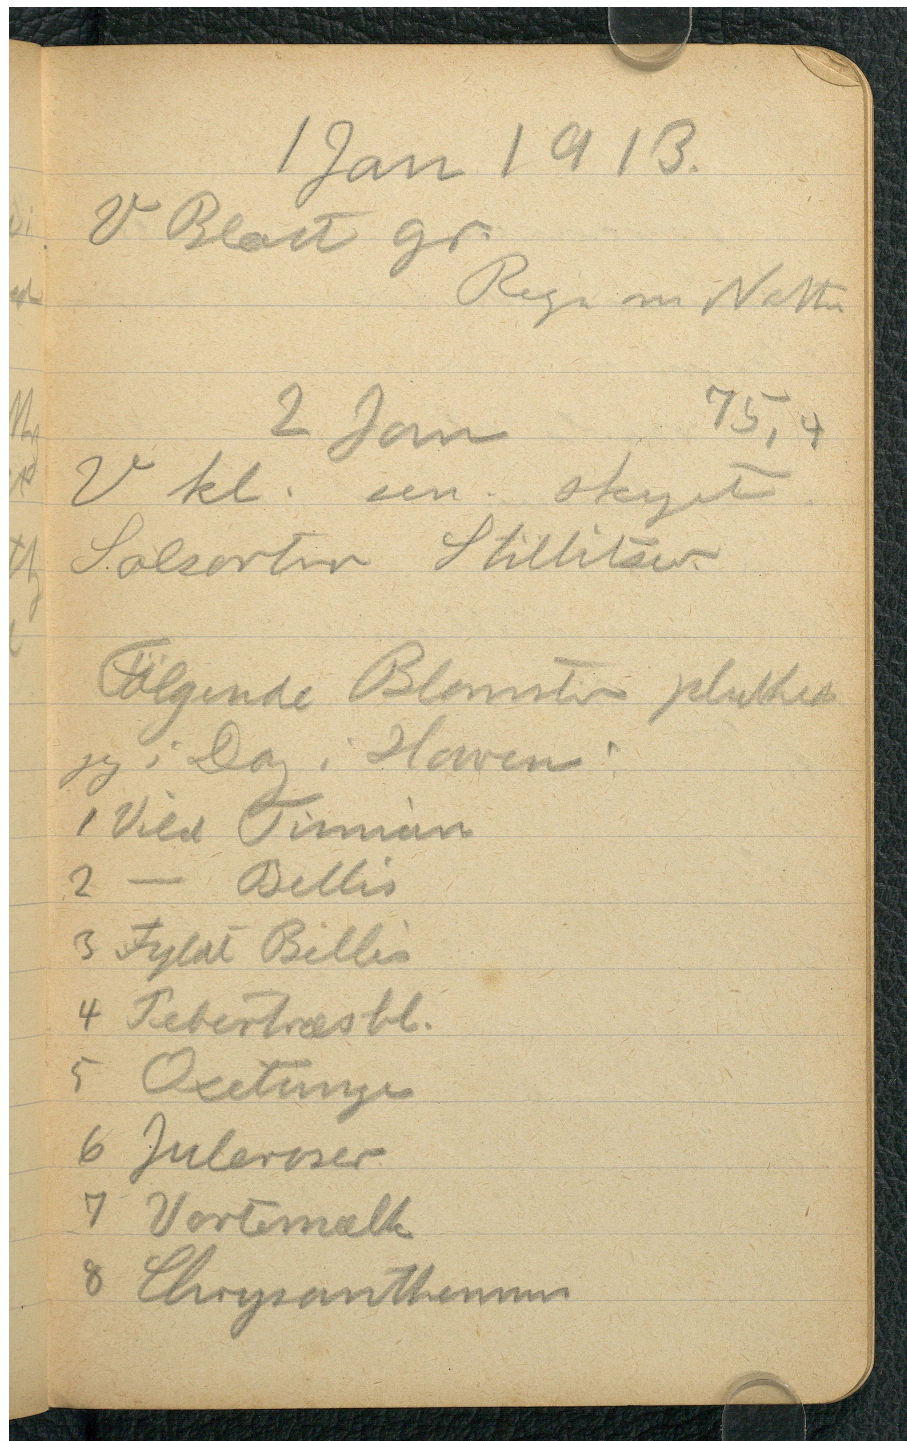 1 Jan 1913.
V Blæst gr.
Regn om Natten
2 Jan 75,4
V kl. sen. skyet
Solsorten Stillitser
Følgende Blomster plukkes
jeg i Dag i Haven:
1 Vild Timian
2 — Bellis
3 Fyldt Bellis
4 Pebertræsbl.
5 Oxetunge
6 Juleroser
7 Vortemælk
8 Chrysanthemum